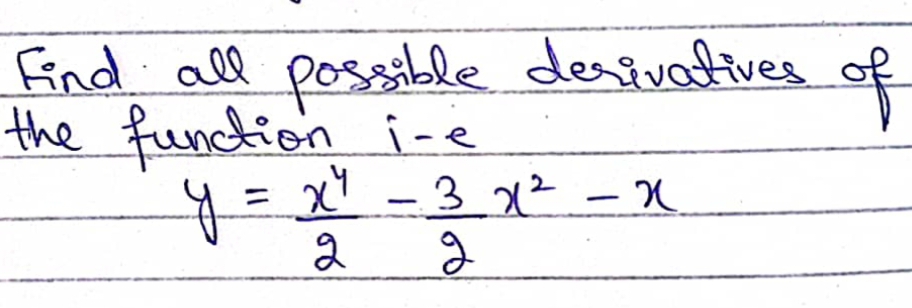 Find all possible derivatives of
the function i-e
y = x⁴/2 - 3/2 x² - x